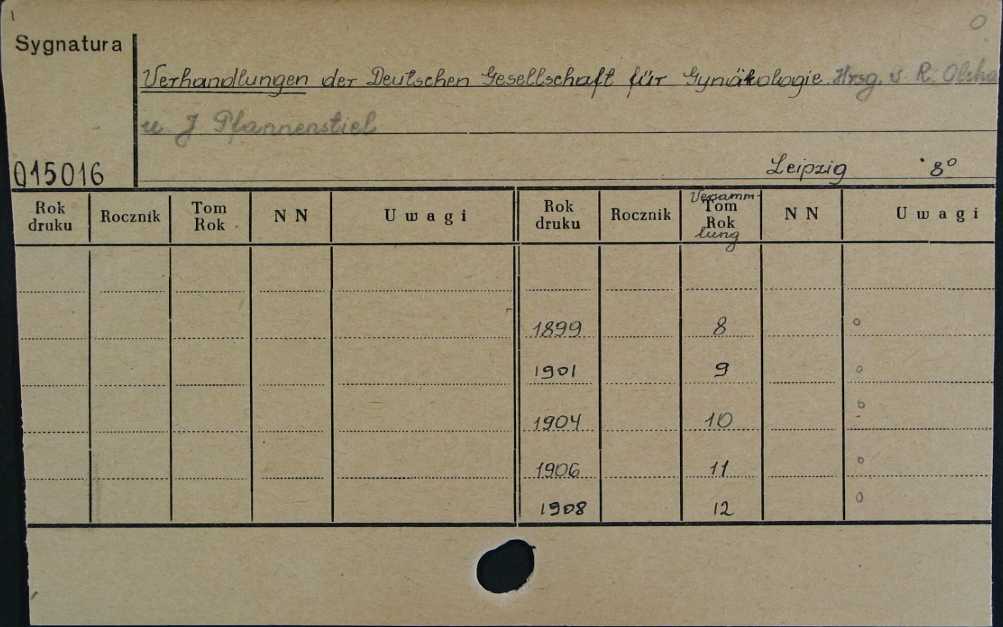 Sygnatura
Verhandlungen der Deutschen Gesellschaft für Gynäkologie. Hrsg. v. R. Olsha
u J Pfannenstiel
015016
Leipzig 8°
Rok druku Rocznik Tom Rok N N Uwagi Rok druku Rocznik Versammlung Tom Rok N N Uwagi
1899 8 o
1901 9 o
1904 10 o
1906 11 o
1908 12 o